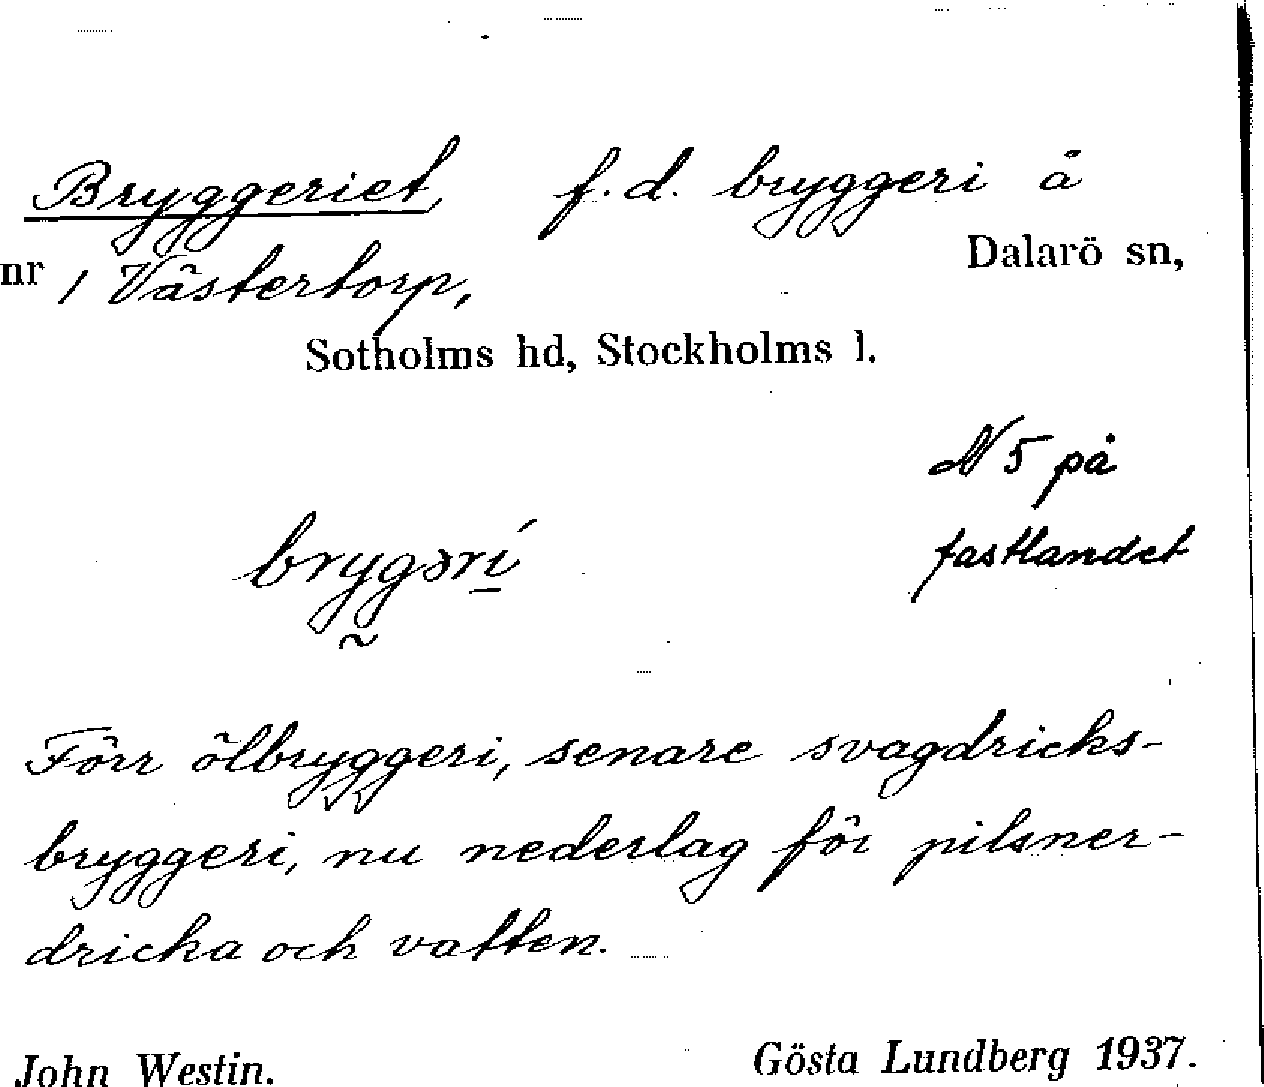 Bryggeriet, f.d. bryggeri å
nr 1 Västertorp, Dalarö sn,
Sotholms hd, Stockholms l.
N 5 på
fastlandet
brygərí
Förr ölbryggeri, senare svagdricks-
bryggeri, nu nederlag för pilsner-
dricka och vatten.
John Westin. Gösta Lundberg 1937.